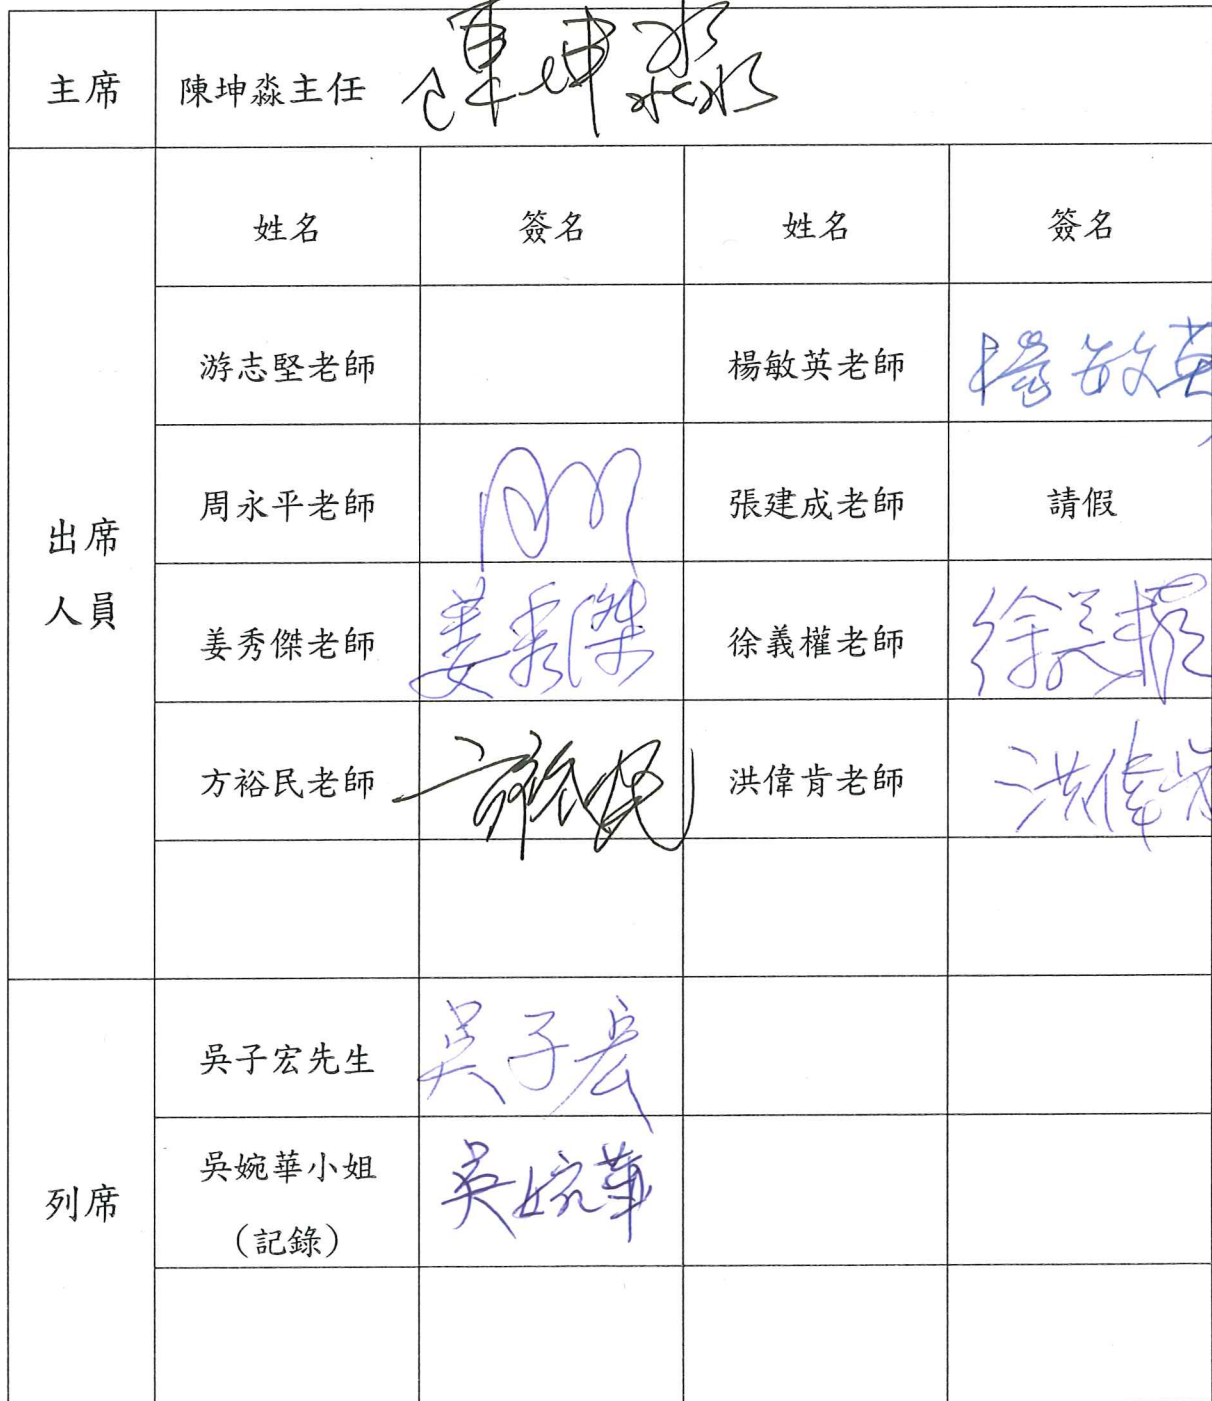 主席 陳坤淼主任 陳坤淼
姓名 簽名 姓名 簽名
游志堅老師 楊敏英老師 楊敏英
周永平老師 張建成老師 請假
出席
人員
姜秀傑老師 姜秀傑 徐義權老師 徐義權
方裕民老師 方裕民 洪偉肯老師 洪偉肯
吳子宏先生 吳子宏
列席
吳婉華小姐 吳婉華
(記錄)